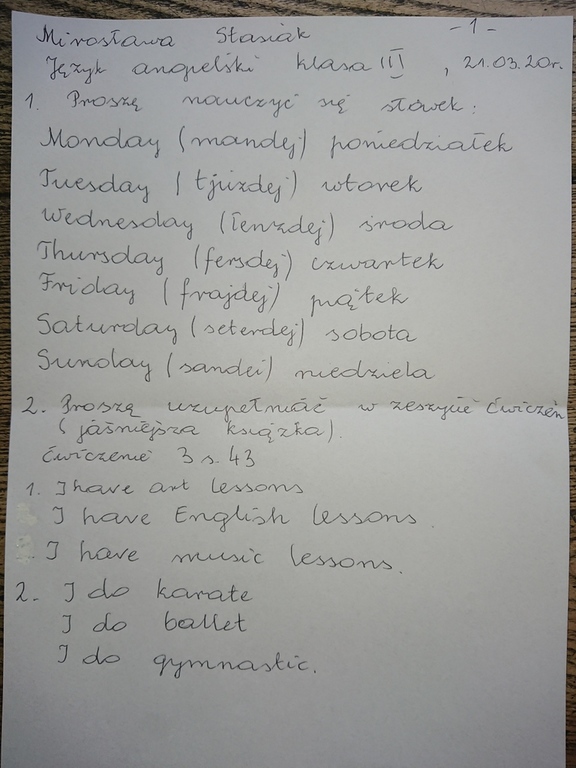 Mirosława Stasiak -1-
Język angielski klasa III, 21.03.20r.
1. Proszę nauczyć się słówek:
Monday (mandej) poniedziałek
Tuesday (tjuzdej) wtorek
Wednesday (łenzdej) środa
Thursday (fersdej) czwartek
Friday (frajdej) piątek
Saturday (seterdej) sobota
Sunday (sandei) niedziela
2. Proszę uzupełniać w zeszycie ćwiczeń
(jaśniejsza książka).
Ćwiczenie 3 s. 43
1. I have art lessons
I have English lessons.
I have music lessons.
2. I do karate
I do ballet
I do gymnastic.